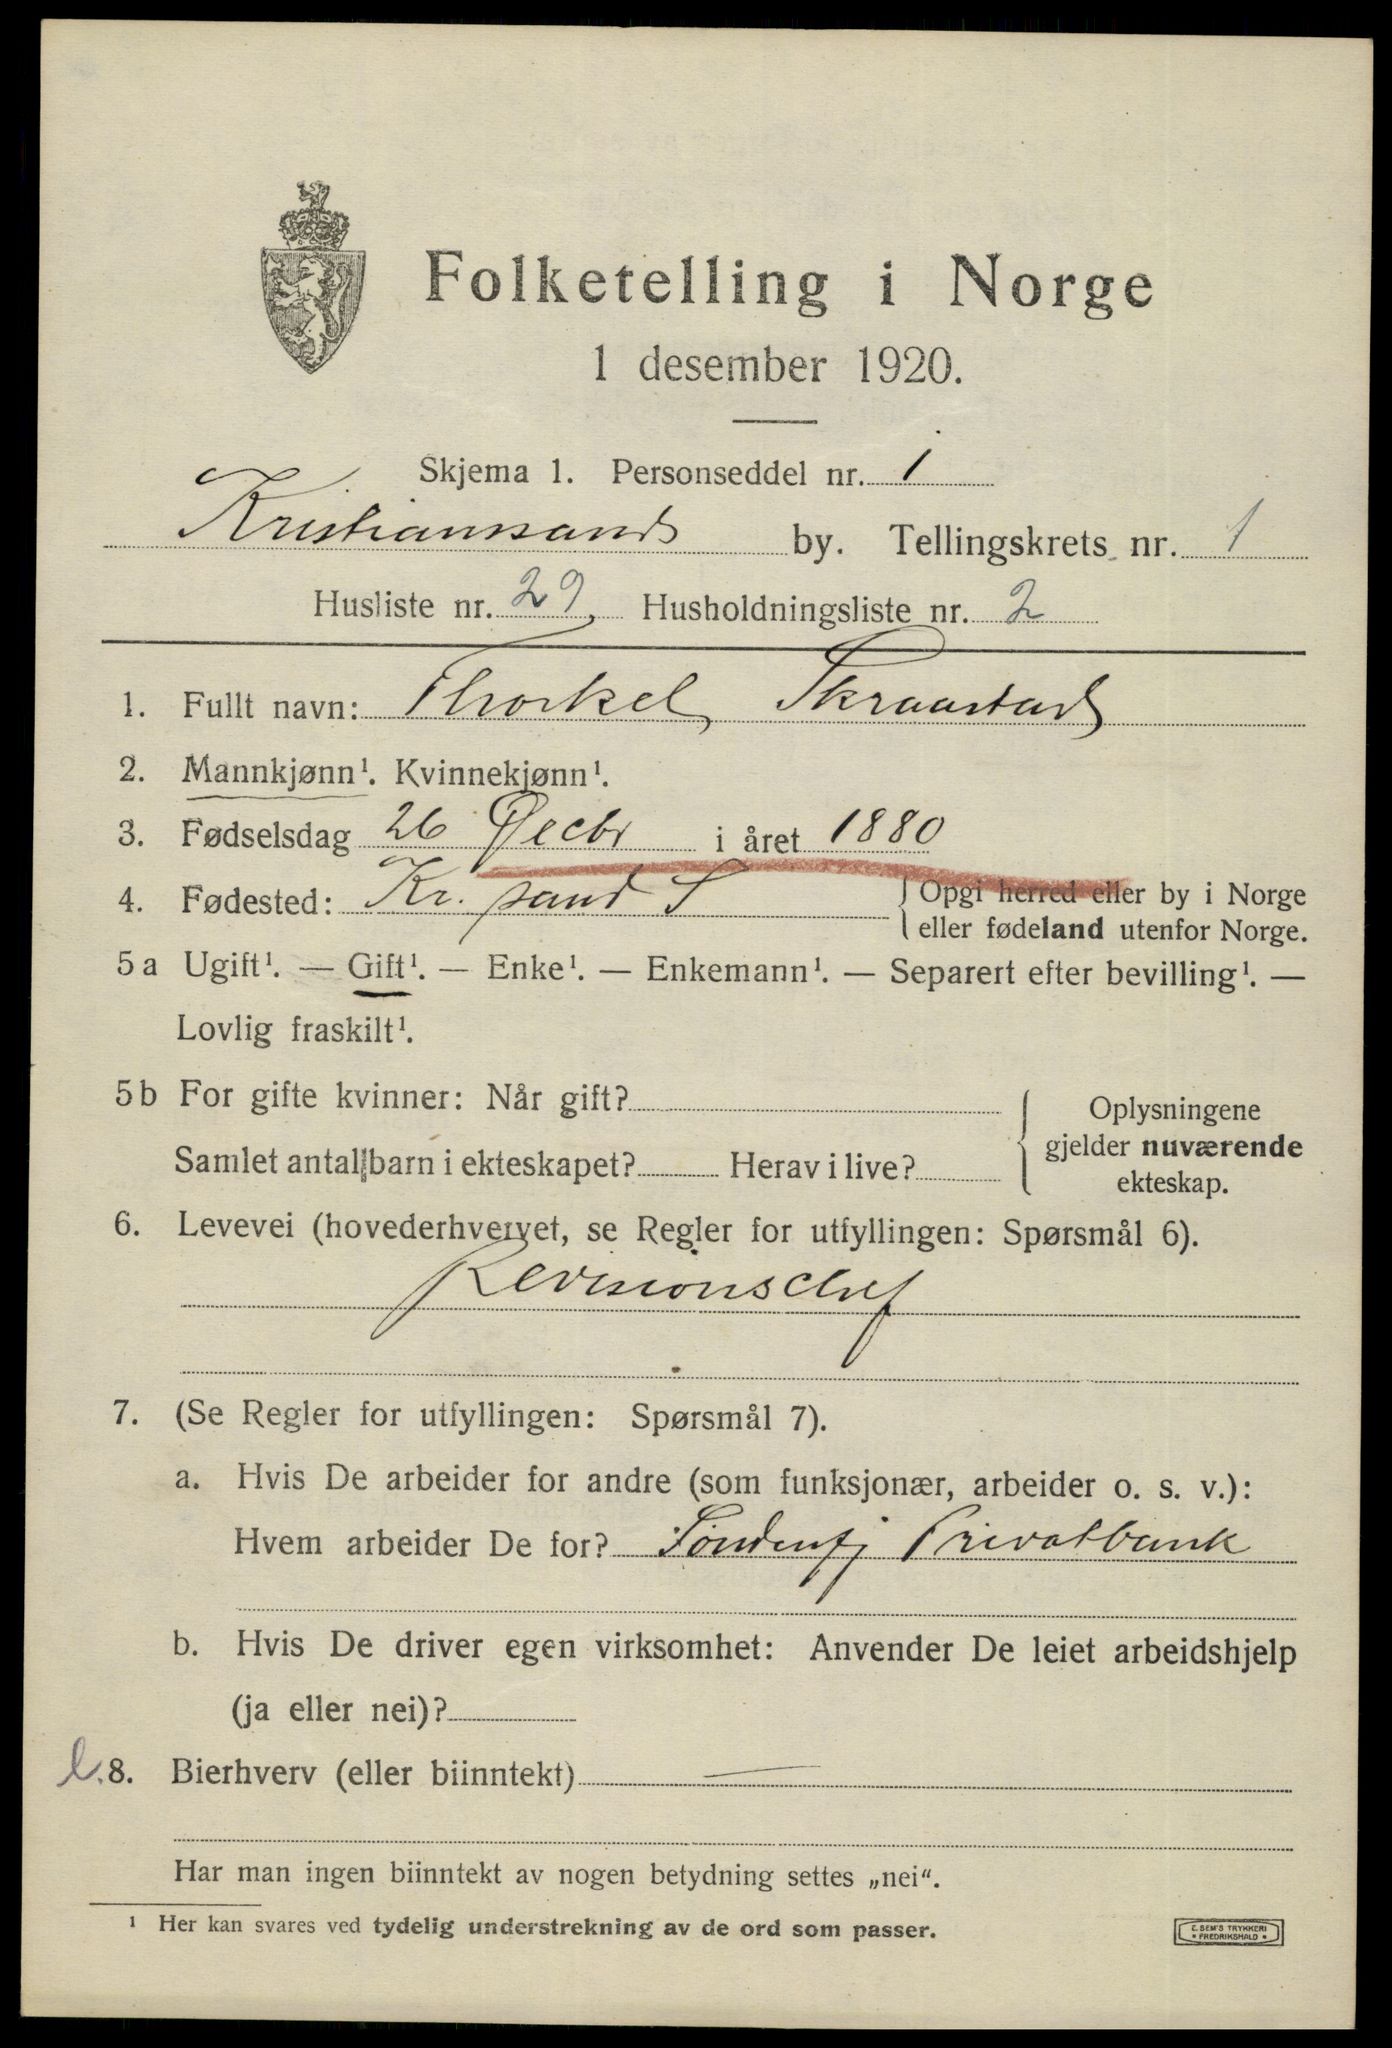 Folketelling i Norge
1 desember 1920.
Skjema 1. Personseddel nr. 1
Kristianssand by. Tellingskrets nr. 1
Husliste nr. 29 Husholdningsliste nr. 2
1. Fullt navn: Thorkel Skraastad
2. Mannkjønn¹. Kvinnekjønn¹.
3. Fødselsdag 26 Decbr i året 1880
4. Fødested: Kr. sand S { Opgi herred eller by i Norge
eller fødeland utenfor Norge.
5a Ugift¹. — Gift¹. — Enke¹. — Enkemann¹. — Separert efter bevilling¹. —
Lovlig fraskilt¹.
5b For gifte kvinner: Når gift?
Samlet antall barn i ekteskapet? Herav i live?
Oplysningene
gjelder nuværende
ekteskap.
6. Levevei (hovederhvervet, se Regler for utfyllingen: Spørsmål 6).
Revisionschef
7. (Se Regler for utfyllingen: Spørsmål 7).
a. Hvis De arbeider for andre (som funksjonær, arbeider o. s. v.):
Hvem arbeider De for? Søndenfj Privatbank
b. Hvis De driver egen virksomhet: Anvender De leiet arbeidshjelp
(ja eller nei)?
l. 8. Bierhverv (eller biinntekt) —
Har man ingen biinntekt av nogen betydning settes „nei“.
¹ Her kan svares ved tydelig understrekning av de ord som passer.
E. SEM'S TRYKKERI
• FREDRIKSHALD •